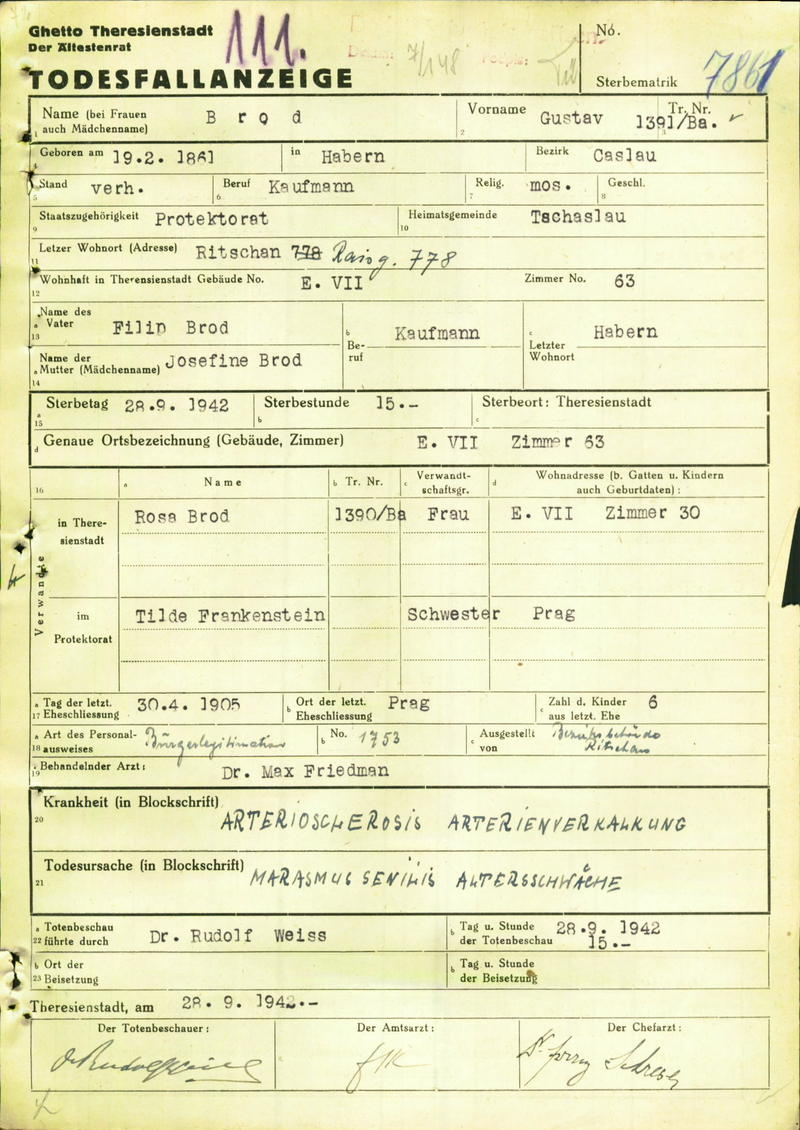 Ghetto Theresienstadt
Der Ältestenrat
111.
7/1 48
TODESFALLANZEIGE
Nó.
Sterbematrik 7861
Name (bei Frauen auch Mädchenname) Brod
1
Vorname Gustav
2
Tr. Nr. 1391/Ba.
3
Geboren am 19.2. 1861 in Habern Bezirk Caslau
4
Stand verh. Beruf Kaufmann Relig. mos. Geschl.
5 6 7 8
Staatszugehörigkeit Protektorat Heimatsgemeinde Tschaslau
9 10
Letzer Wohnort (Adresse) Ritschan 778 Raisg. 778
11
Wohnhaft in Theresienstadt Gebäude No. E. VII Zimmer No. 63
12
Name des
a Vater Filip Brod b Be-ruf Kaufmann c Letzter Wohnort Habern
13
Name der
a Mutter (Mädchenname) Josefine Brod
14
Sterbetag 28.9. 1942 Sterbestunde 15.- Sterbeort: Theresienstadt
a 15 b c
d Genaue Ortsbezeichnung (Gebäude, Zimmer) E. VII Zimmer 63
16 a Name b Tr. Nr. c Verwandt-schaftsgr. d Wohnadresse (b. Gatten u. Kindern auch Geburtdaten) :
Verwandte
in There-sienstadt Rosa Brod 1390/Ba Frau E. VII Zimmer 30
im Protektorat Tilde Frankenstein Schwester Prag
a Tag der letzt. 17 Eheschliessung 30.4. 1905 b Ort der letzt. Eheschliessung Prag c Zahl d. Kinder aus letzt. Ehe 6
a Art des Personal-18 ausweises Bürgerlegitimation b No. 1753 c Ausgestellt von Bezirksbehörde Ritschan
19 Behandelnder Arzt: Dr. Max Friedman
Krankheit (in Blockschrift) ARTERIOSCLEROSIS ARTERIENVERKALKUNG
20
Todesursache (in Blockschrift) MARASMUS SENILIS ALTERSSCHWÄCHE
21
a Totenbeschau 22 führte durch Dr. Rudolf Weiss b Tag u. Stunde der Totenbeschau 28.9. 1942 15.-
b Ort der 23 Beisetzung b Tag u. Stunde der Beisetzung
Theresienstadt, am 28. 9. 1942.-
Der Totenbeschauer: Der Amtsarzt: Der Chefarzt: